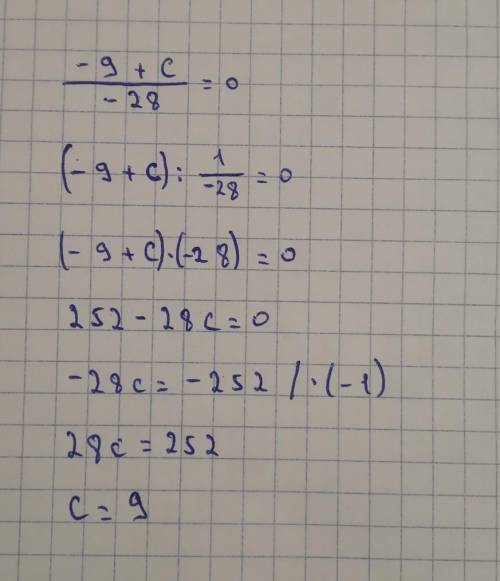 -9 + c
/ -28 = 0
(-9 + c) : 1/-28 = 0
(-9 + c) · (-28) = 0
252 - 28c = 0
-28c = -252 / · (-1)
28c = 252
c = 9